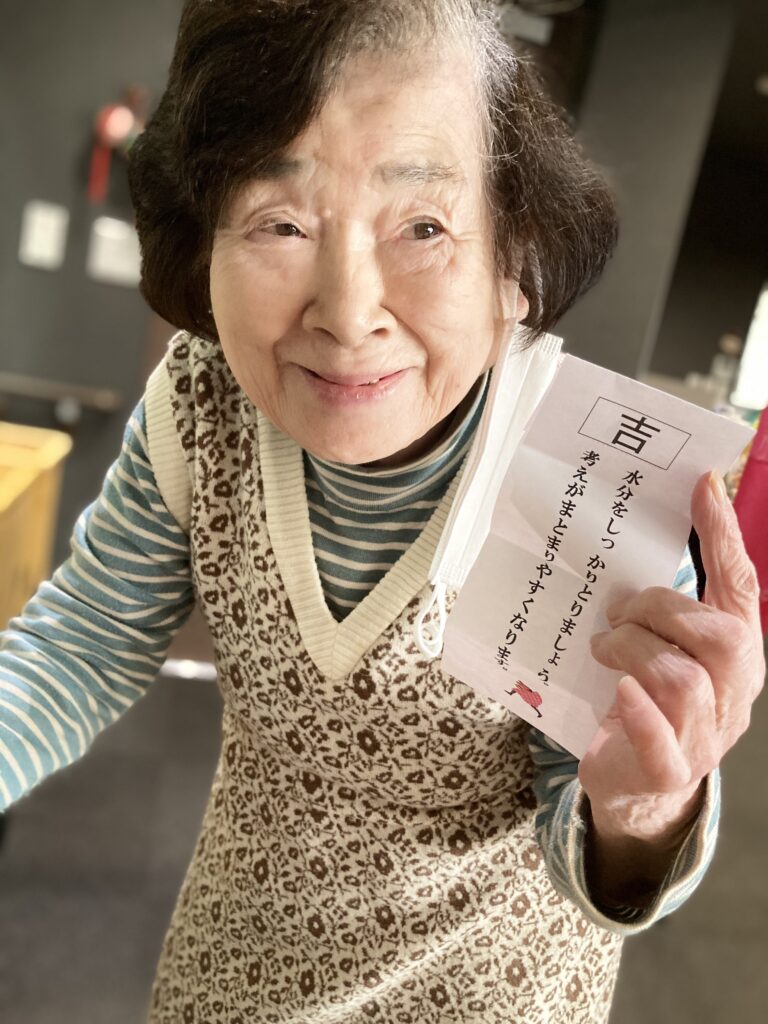 吉
水分をしっかりとりましょう。
考えがまとまりやすくなります。